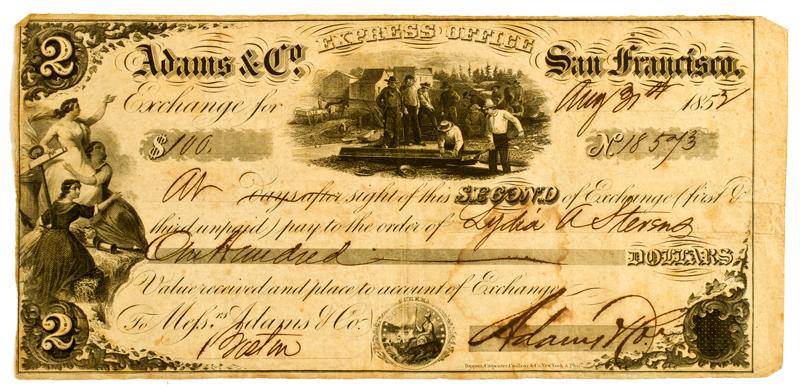 2
EXPRESS OFFICE
Adams & Co. San Francisco,
Exchange for Aug 31th 1852
$ 100. No 18573
At Days after sight of this SECOND of Exchange (first &
third unpaid) pay to the order of Lydia A Stevens
One Hundred DOLLARS,
Value received and place to account of Exchange
To Mess.rs Adams & Co.
Boston
Adams & Co.
EUREKA
2
Toppan, Carpenter, Casilear & Co. New York & Phil.